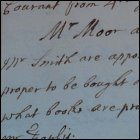 Courant from 4th
Mr Moor a
Mr Smith are appo
proper to be bought a
what books are pro